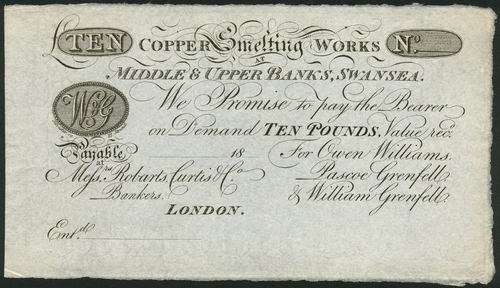 £TEN COPPER Smelting WORKS N.o
AT
MIDDLE & UPPER BANKS, SWANSEA.
We Promise to pay the Bearer
on Demand TEN POUNDS, Value rec.d
18 For Owen Williams.
Payable at Mess.rs Robarts, Curtis & Co Pascoe Grenfell
Bankers. & William Grenfell
LONDON.
Ent.d